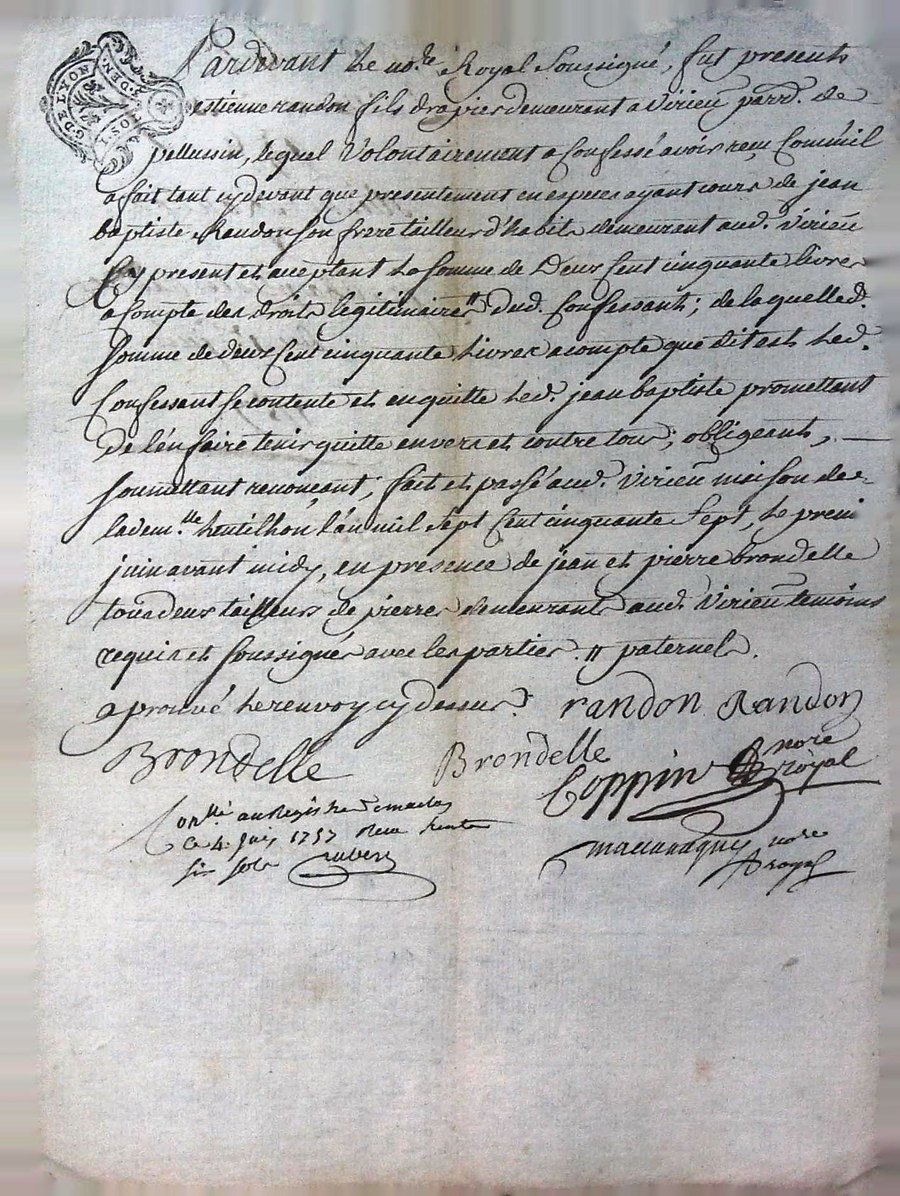 G. DE LYON
2. DEN.
Pardevant Le no.re Royal Soussigné, fut present
estienne randon fils drapier demeurant a Virieu parr.d de
pellussin, lequel Volontairement a Confessé avoir reçu Comm'il
a fait tant cydevant que presentement en especes ayant cours de jean
baptiste Randon son frere tailleur d'habits demeurant aud. Virieu
Cy present et acceptant La somme de Deux Cent cinquante livres
a Compte des droits legitimaires " dud. Confessant; de laquelle d.
somme de deux Cent cinquante Livres acompte que dit est Led.
Confessant se contente et en quitte Led. jean baptiste promettant
de l'en faire tenir quitte envers et contre tous; obligeant,
soumettant renonçant; fait et passé aud. Virieu maison de
ladem.lle L'an mil Sept Cent cinquante Sept, Le premi
juin avant midy, en presence de jean et pierre brondelle
tous deux tailleurs de pierres demeurants aud. Virieu temoins
requis et Soussignés avec les parties. " paternels.
aprouvé Le renvoy cy dessus.
randon Randon
Brondelle Brondelle
Coppin nore royal
Conllé au Registre des actes
Ce 4. juin 1757 Reçu trente
six sols
nore
royal